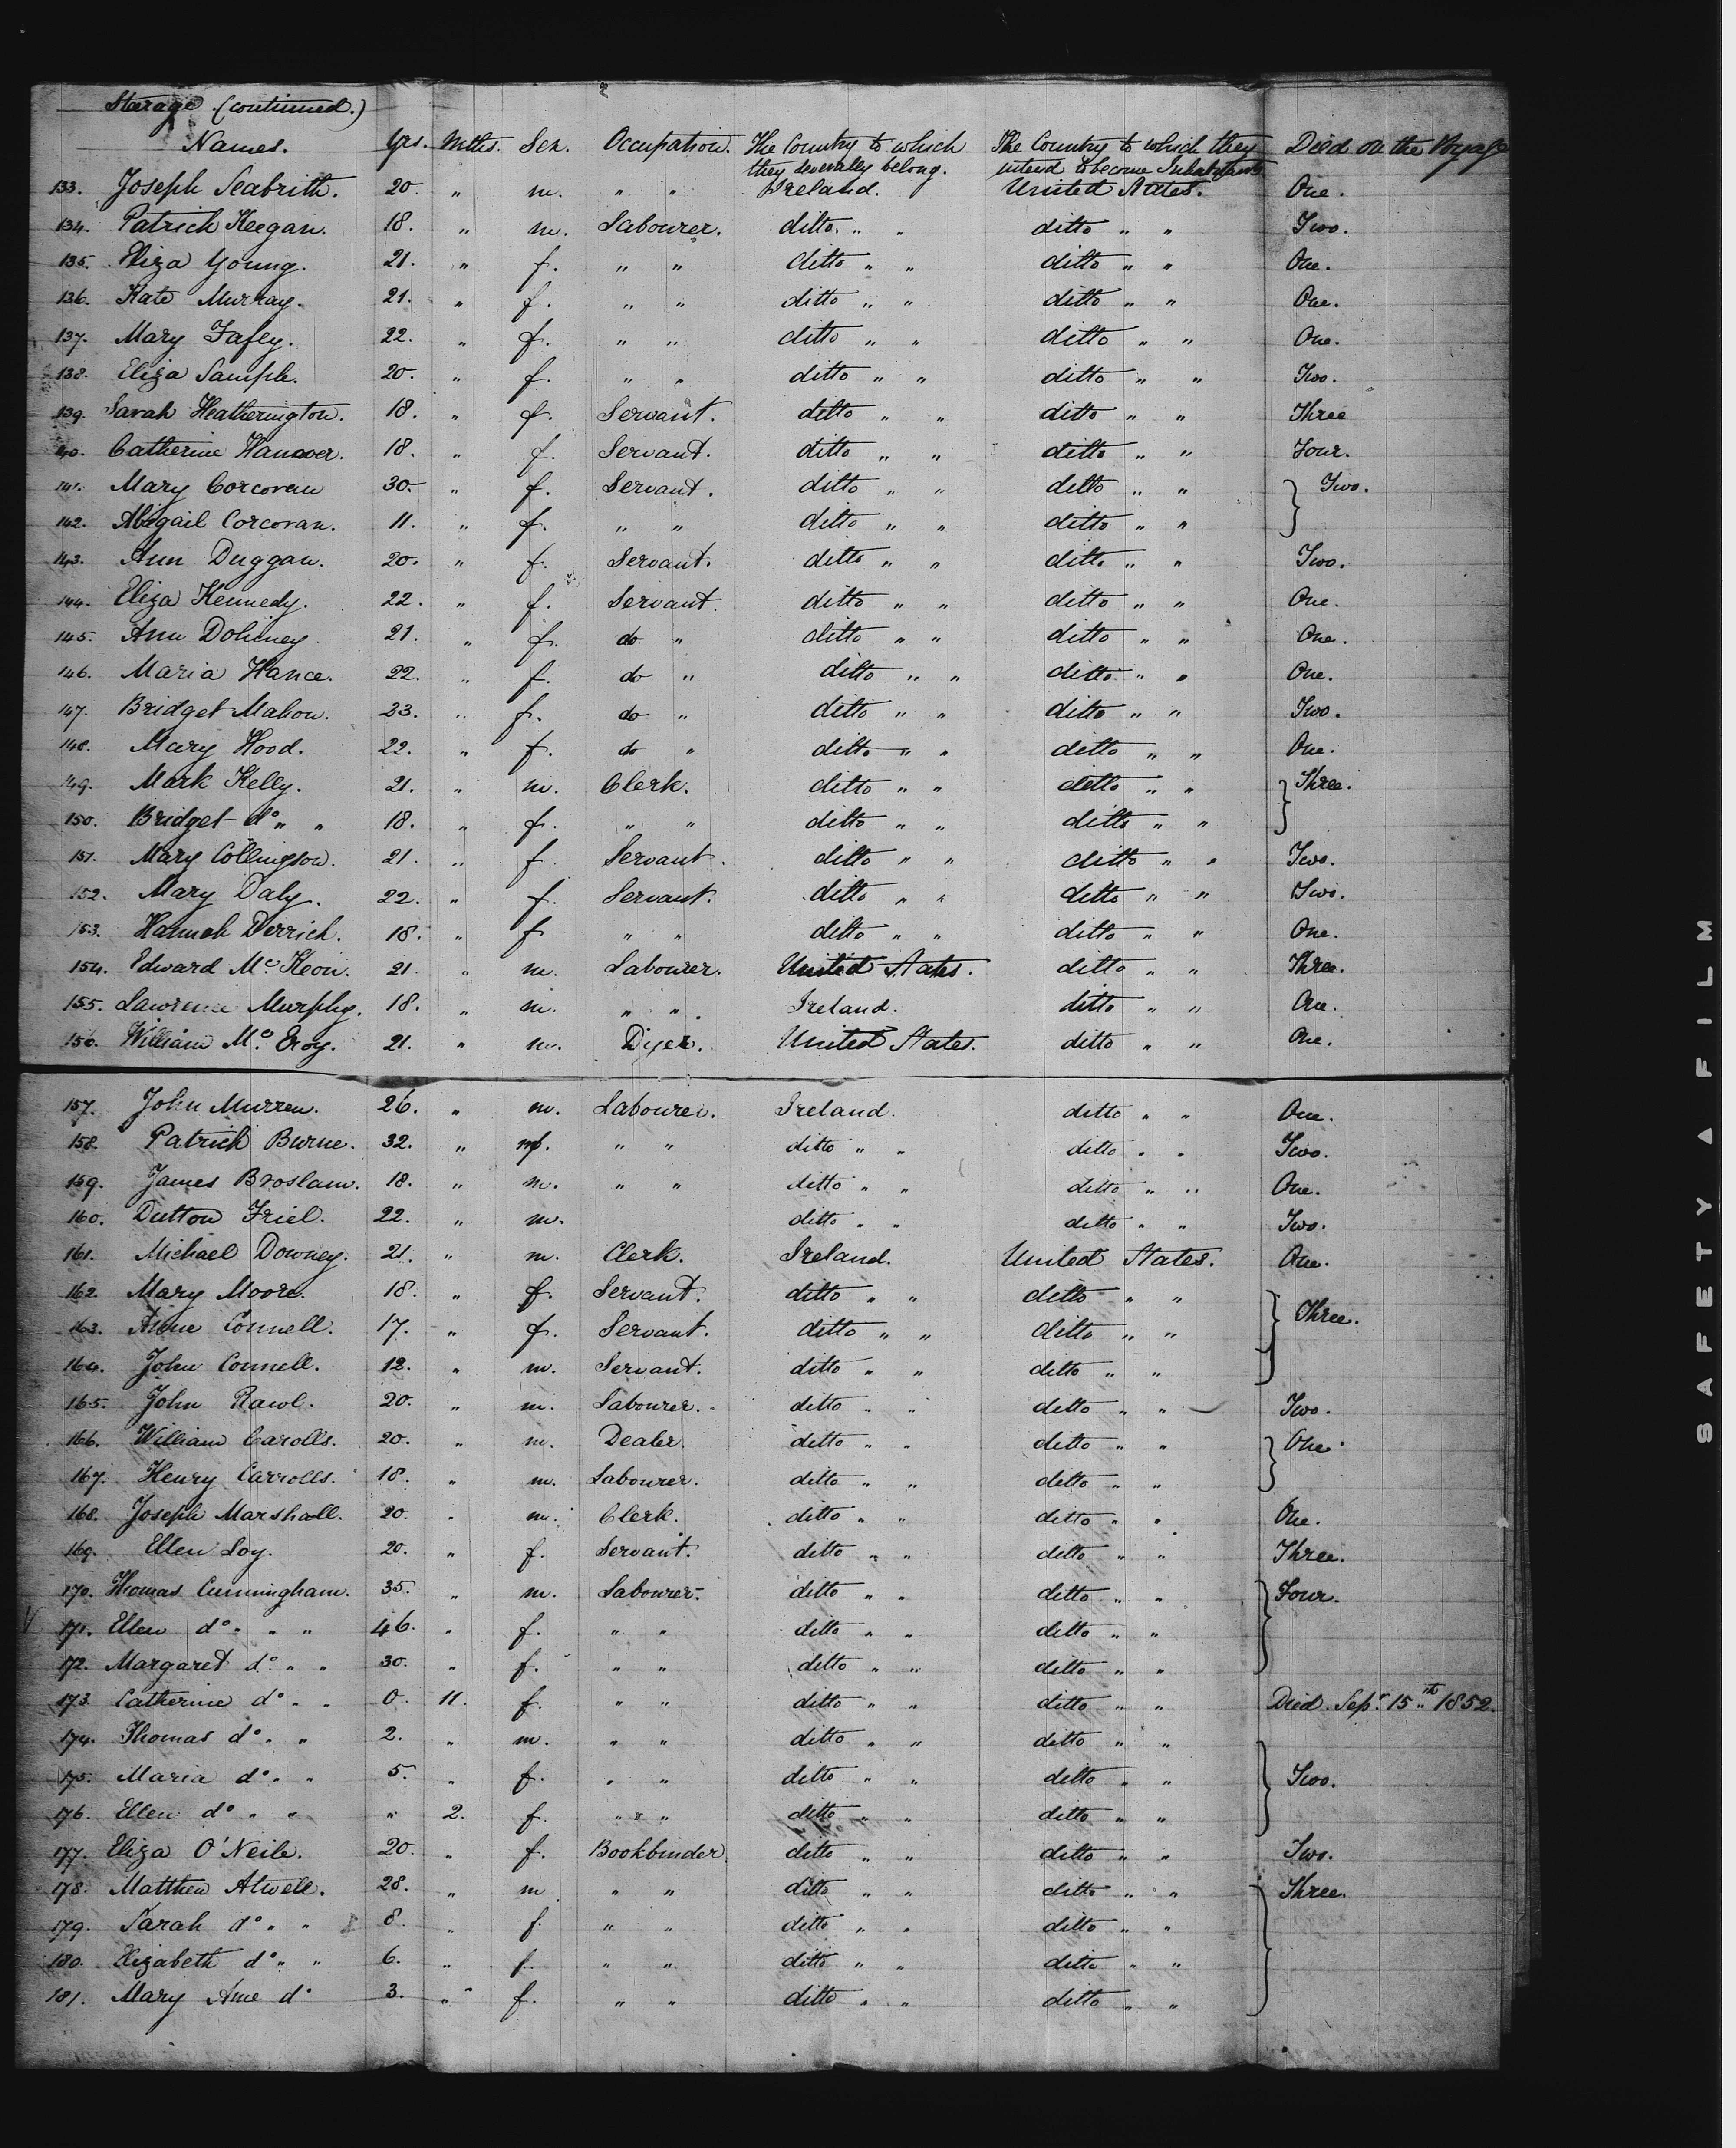 Sterage (continued.)
Names. Yrs. Mths. Sex. Occupation. The Country to which they severally belong. The Country to which they intend to become Inhabitants Died on the Voyage
133. Joseph Seabrith. 20. " m. " " Ireland. United States. One.
134. Patrick Keegan. 18. " m. Labourer. ditto " " ditto " " Two.
135. Eliza Young. 21. " f. " " ditto " " ditto " " One.
136. Kate Murray. 21. " f. " " ditto " " ditto " " One.
137. Mary Fafey. 22. " f. " " ditto " " ditto " " One.
138. Eliza Sample. 20. " f. " " ditto " " ditto " " Two.
139. Sarah Heatherington. 18. " f. Servant. ditto " " ditto " " Three
40. Catherine Hanover. 18. " f. Servant. ditto " " ditto " " Four.
141. Mary Corcoran 30. " f. Servant. ditto " " ditto " " } Two.
142. Abigail Corcoran. 11. " f. " " ditto " " ditto " "
143. Ann Duggan. 20. " f. Servant. ditto " " ditto " " Two.
144. Eliza Kennedy. 22. " f. Servant. ditto " " ditto " " One.
145. Ann Doheney. 21. " f. do " ditto " " ditto " " One.
146. Maria Hance. 22. " f. do " ditto " " ditto " " One.
147. Bridget Mahon. 23. " f. do " ditto " " ditto " " Two.
148. Mary Hood. 22. " f. do " ditto " " ditto " " One.
149. Mark Kelly. 21. " m. Clerk. ditto " " ditto " " } Three.
150. Bridget do " " 18. " f. " " ditto " " ditto " "
151. Mary Collingson. 21. " f Servant. ditto " " ditto " " Two.
152. Mary Daly. 22. " f. Servant. ditto " " ditto " " Two.
153. Hannah Derrick. 18. " f " " ditto " " ditto " " One.
154. Edward Mc Keon. 21. " m. Labourer. United States. ditto " " Three.
155. Lawrence Murphy. 18. " m. " " Ireland. ditto " " One.
156. William Mc. Evoy. 21. " m. Dyer. United States. ditto " " One.
157. John Murren. 26. " m. Labourer. Ireland. ditto " " One.
158. Patrick Burne. 32. " m. " " ditto " " ditto " " Two.
159. James Broslam. 18. " m. " " ditto " " ditto " " One.
160. Dutton Friel. 22. " m. ditto " " ditto " " Two.
161. Michael Downey. 21. " m. Clerk. Ireland. United States. One.
162. Mary Moore. 18. " f. Servant. ditto " " ditto " " } Three.
163. Anne Connell. 17. " f. Servant. ditto " " ditto " "
164. John Connell. 12. " m. Servant. ditto " " ditto " "
165. John Rawl. 20. " m. Labourer. ditto " " ditto " " Two.
166. William Carolls. 20. " m. Dealer. ditto " " ditto " " } One.
167. Henry Carrolls. 18. " m. Labourer. ditto " " ditto " "
168. Joseph Marshall. 20. " m. Clerk. ditto " " ditto " " One.
169. Ellen Loy. 20. " f. Servant. ditto " " ditto " " Three.
170. Thomas Cunningham. 35. " m. Labourer. ditto " " ditto " " } Four.
171. Ellen do " " 46. " f. " " ditto " " ditto " "
172. Margaret do " " 30. " f. " " ditto " " ditto " "
173. Catherine do " " 0. 11. f. " " ditto " " ditto " " Died Sepr. 15th 1852.
174. Thomas do " " 2. " m. " " ditto " " ditto " "
175. Maria do " " 5. " f. " " ditto " " ditto " " } Two.
176. Ellen do " " " 2. f. " " ditto " " ditto " "
177. Eliza O'Neile. 20. " f. Bookbinder ditto " " ditto " " Two.
178. Matthew Atwell. 28. " m " " ditto " " ditto " " } Three.
179. Sarah do " " 8. " f. " " ditto " " ditto " "
180. Elizabeth do " " 6. " f. " " ditto " " ditto " "
181. Mary Anne do 3. " f. " " ditto " " ditto " "
SAFETY ▲ FILM